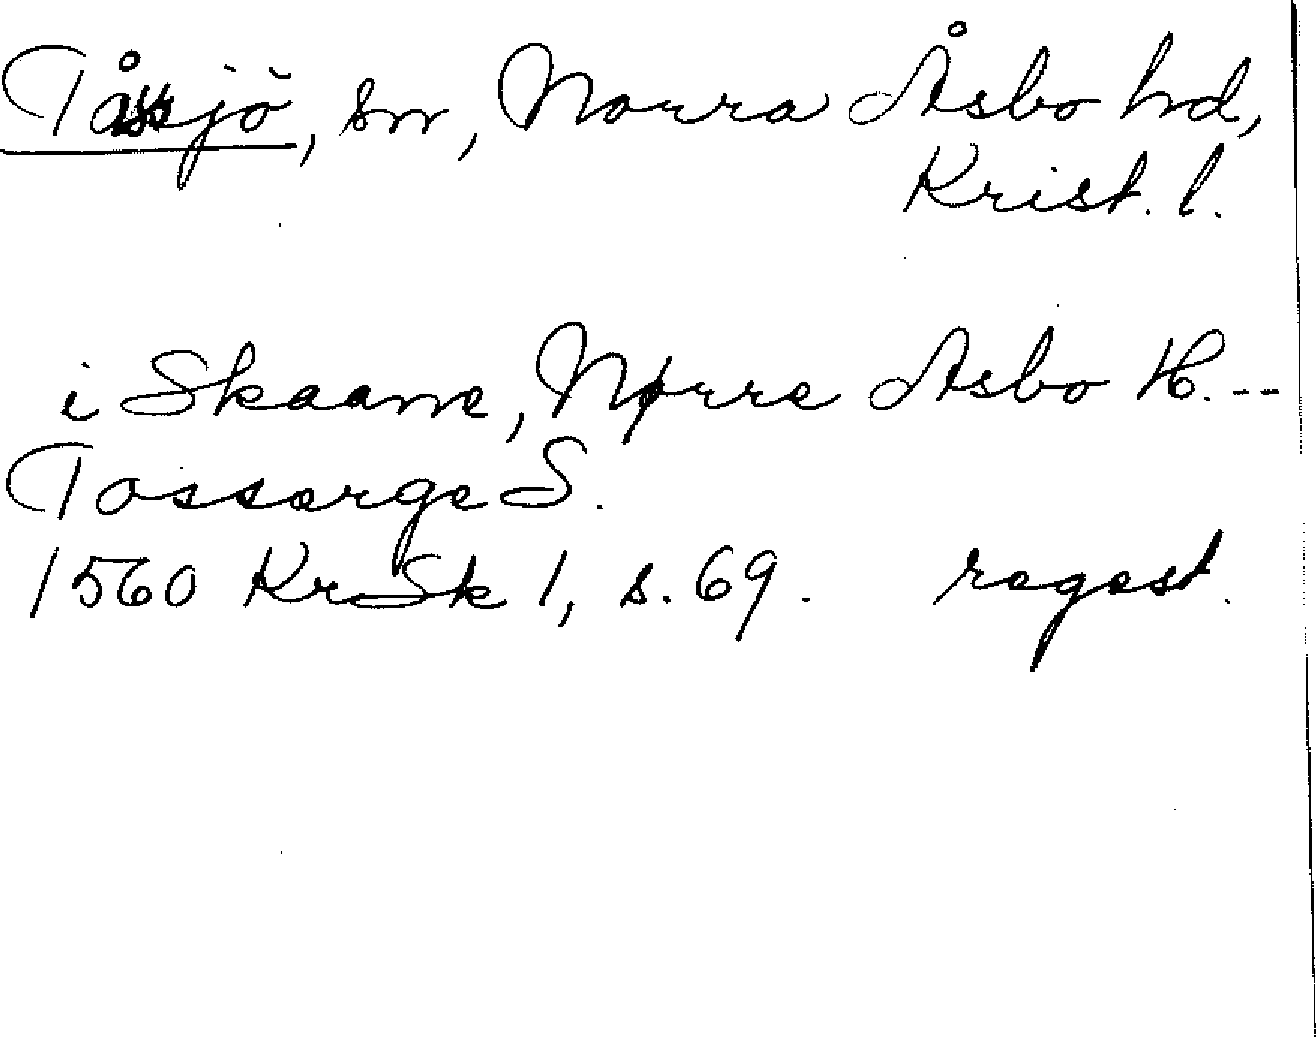 Tåssjö, sn, Norra Åsbo hd,
Krist. l.
i Skaane, Nørre Asbo H. --
Tosserge S.
1560 KrSk 1, s. 69. regest.